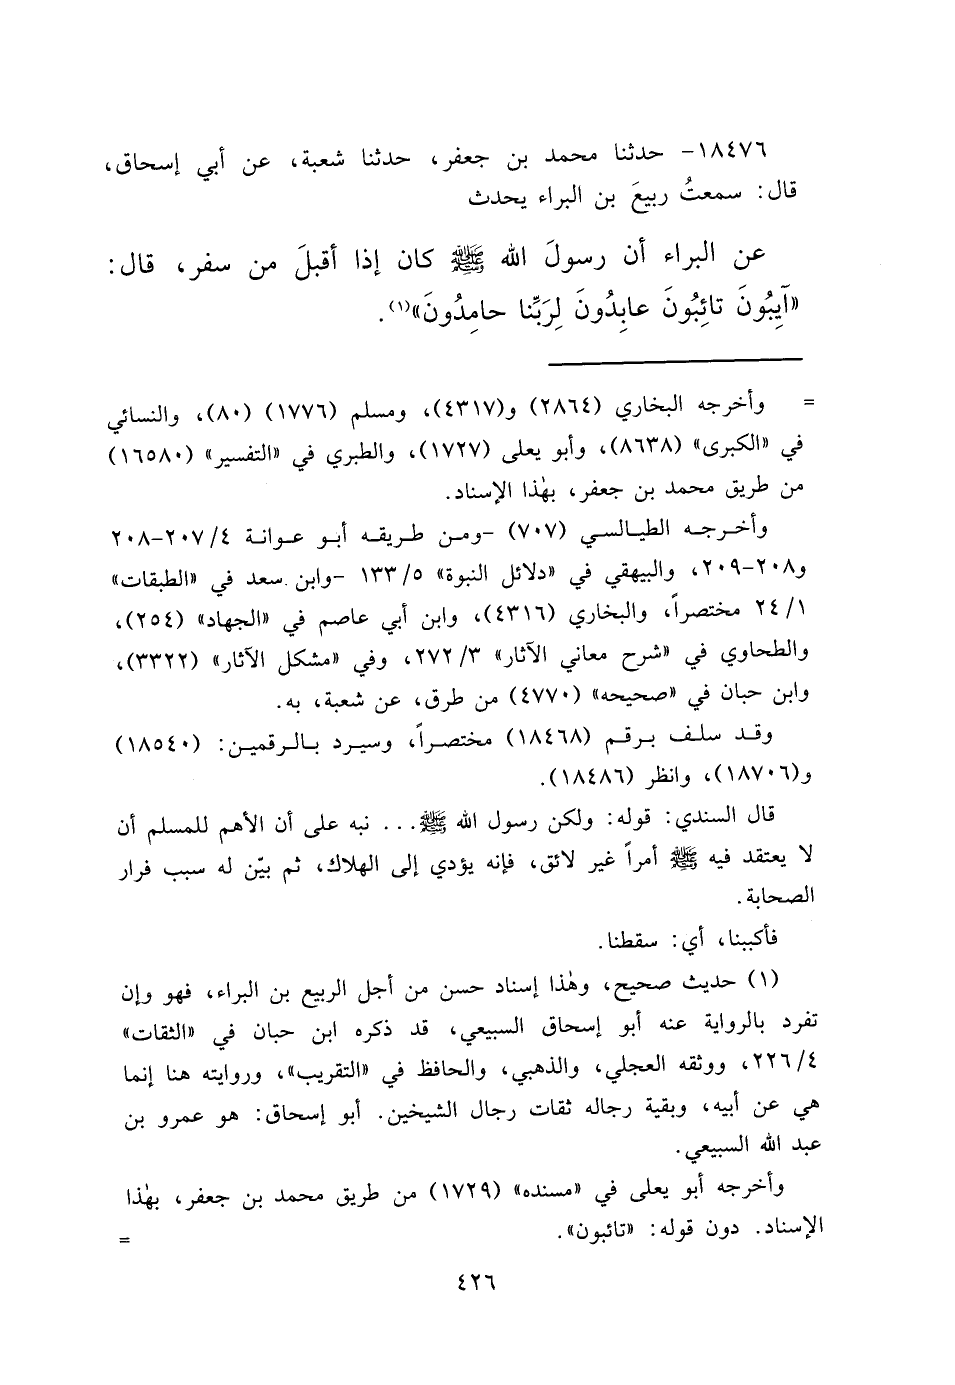 ١٨٤٧٦- حدثنا محمد بن جعفر، حدثنا شعبة، عن أبي إسحاق،
قال: سمعتُ ربيعَ بن البراء يحدث
عن البراء أن رسولَ الله ﷺ كان إذا أقبلَ من سفر، قال:
«آيِبُونَ تائِبُونَ عابِدُونَ لِرَبِّنا حامِدُونَ»(١).
= وأخرجه البخاري (٢٨٦٤) و(٤٣١٧)، ومسلم (١٧٧٦) (٨٠)، والنسائي
في «الكبرى» (٨٦٣٨)، وأبو يعلى (١٧٢٧)، والطبري في «التفسير» (١٦٥٨٠)
من طريق محمد بن جعفر، بهٰذا الإسناد.
وأخرجه الطيالسي (٧٠٧) -ومن طريقه أبو عوانة ٤/ ٢٠٧-٢٠٨
و٢٠٨-٢٠٩، والبيهقي في «دلائل النبوة» ٥/ ١٣٣ -وابن سعد في «الطبقات»
١/ ٢٤ مختصراً، والبخاري (٤٣١٦)، وابن أبي عاصم في «الجهاد» (٢٥٤)،
والطحاوي في «شرح معاني الآثار» ٣/ ٢٧٢، وفي «مشكل الآثار» (٣٣٢٢)،
وابن حبان في «صحيحه» (٤٧٧٠) من طرق، عن شعبة، به.
وقد سلف برقم (١٨٤٦٨) مختصراً، وسيرد بالرقمين: (١٨٥٤٠)
و(١٨٧٠٦)، وانظر (١٨٤٨٦).
قال السندي: قوله: ولكن رسول الله ﷺ... نبه على أن الأهم للمسلم أن
لا يعتقد فيه ﷺ أمراً غير لائق، فإنه يؤدي إلى الهلاك، ثم بيّن له سبب فرار
الصحابة.
فأكببنا، أي: سقطنا.
(١) حديث صحيح، وهٰذا إسناد حسن من أجل الربيع بن البراء، فهو وإن
تفرد بالرواية عنه أبو إسحاق السبيعي، قد ذكره ابن حبان في «الثقات»
٤/ ٢٢٦، ووثقه العجلي، والذهبي، والحافظ في «التقريب»، وروايته هنا إنما
هي عن أبيه، وبقية رجاله ثقات رجال الشيخين. أبو إسحاق: هو عمرو بن
عبد الله السبيعي.
وأخرجه أبو يعلى في «مسنده» (١٧٢٩) من طريق محمد بن جعفر، بهٰذا
الإسناد. دون قوله: «تائبون». =
٤٢٦